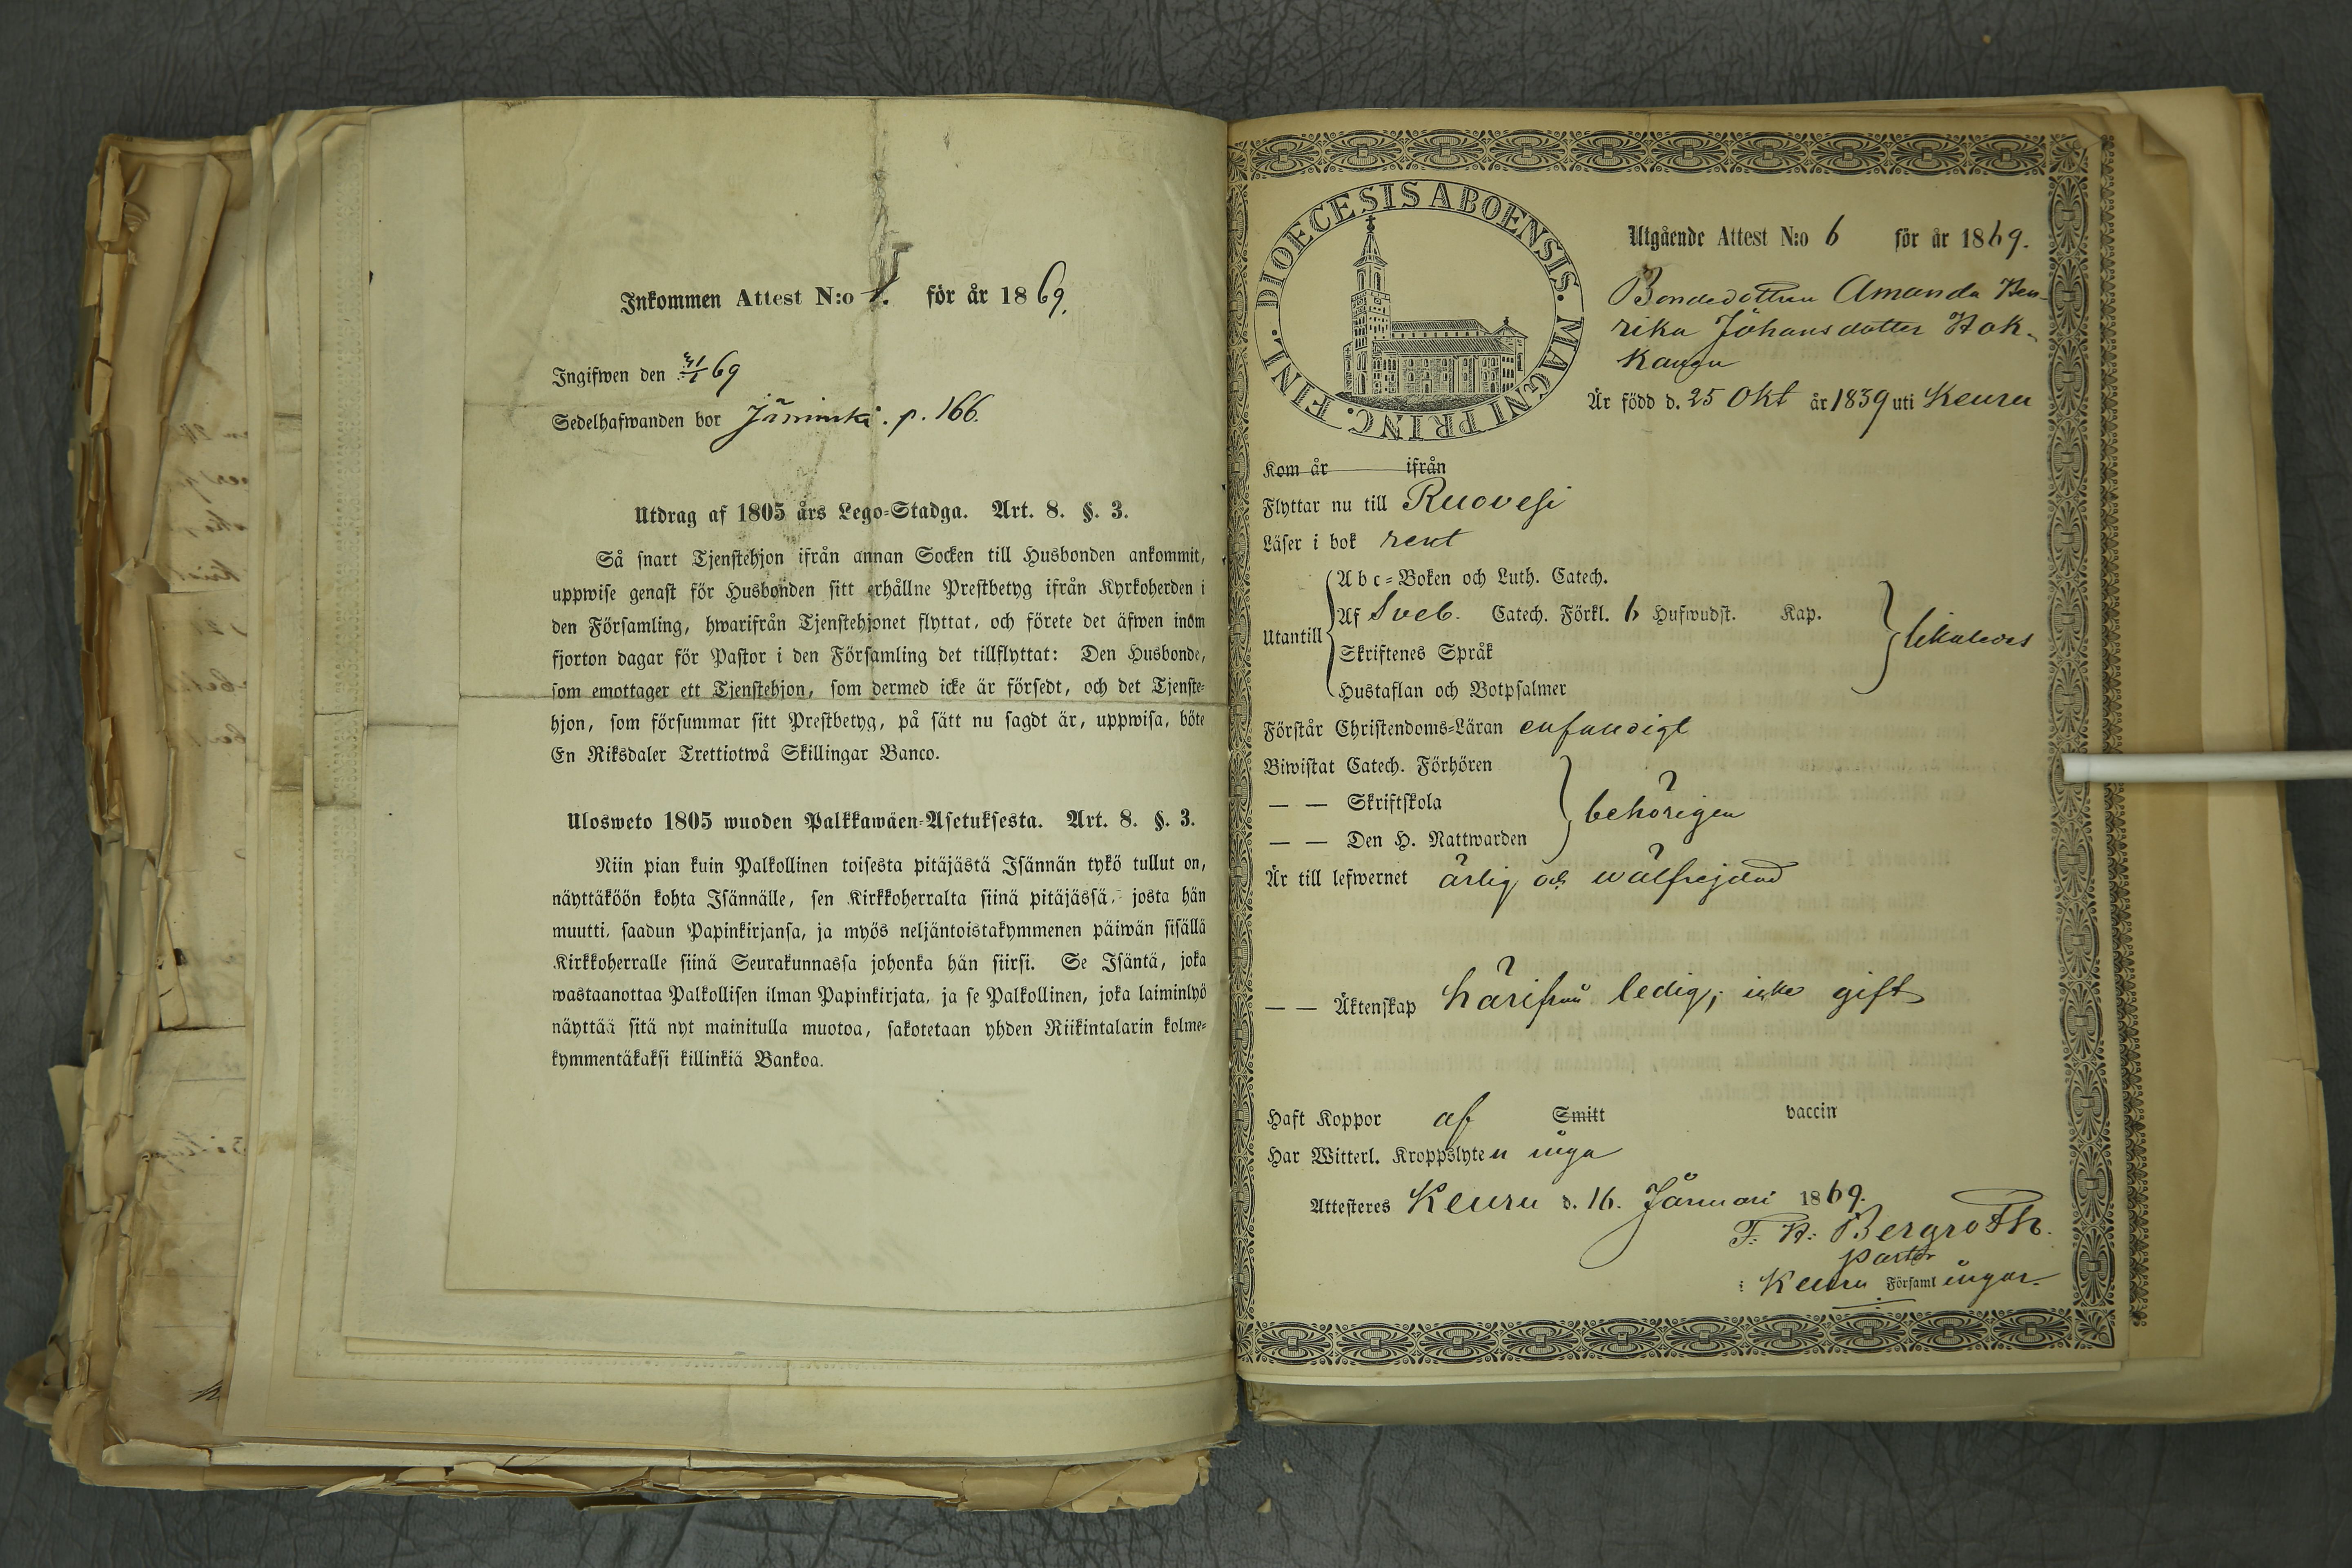 Inkommen Attest N:o 1. för år 1869.
Ingifwen den 31/1 69
Sedelhafwanden bor Jäminki. p. 166.
Utdrag af 1805 års Lego-Stadga. Art. 8. §. 3.
Så snart Tjenstehjon ifrån annan Socken till Husbonden ankommit,
uppwise genast för Husbonden sitt erhållne Prestbetyg ifrån Kyrkoherden i
den Församling, hwarifrån Tjenstehjonet flyttat, och förete det äfwen inom
fjorton dagar för Pastor i den Församling det tillflyttat: Den Husbonde,
som emottager ett Tjenstehjon, som dermed icke är försedt, och det Tjenste-
hjon, som försummar sitt Prestbetyg, på sätt nu sagdt är, uppwisa, böte
En Riksdaler Trettiotwå Skillingar Banco.
Ulosweto 1805 wuoden Palkkawäen-Asetuksesta. Art. 8. §. 3.
Niin pian kuin Palkollinen toisesta pitäjästä Isännän tykö tullut on,
näyttäköön kohta Isännälle, sen Kirkkoherralta siinä pitäjässä, josta hän
muutti, saadun Papinkirjansa, ja myös neljäntoistakymmenen päiwän sisällä
Kirkkoherralle siinä Seurakunnassa johonka hän siirsi. Se Isäntä, joka
wastaanottaa Palkollisen ilman Papinkirjata, ja se Palkollinen, joka laiminlyö
näyttää sitä nyt mainitulla muotoa, sakotetaan yhden Riikintalarin kolme-
kymmentäkaksi killinkiä Bankoa.
DIOECESIS ABOENSIS. MAGNI PRINC. FINL.
Utgående Attest N:o 6 för år 1869.
Bondedottren Amanda Hen-
rika Johansdotter Hok-
kangu
Är född d. 25 Okt år 1839 uti Keuru
Kom år ifrån
Flyttar nu till Ruovesi
Läser i bok rent
Utantill
Abc-Boken och Luth. Catech.
Af Sveb. Catech. Förkl. 6 Hufwudst. Kap.
Skriftenes Språk
Hustaflan och Botpsalmer
likaledes
Förstår Christendoms-Läran enfaldigt
Biwistat Catech. Förhören
— — Skriftskola
— — Den H. Nattwarden
behörigen
Är till lefwernet ärlig och wälfrejdad
— — Äktenskap härifrån ledig; icke gift
Haft Koppor af Smitt vaccin
Har Witterl. Kroppslyten inga
Attesteres Keuru d. 16. Januari 1869.
F. H. Bergroth.
pastor
i Keuru Församlingar.